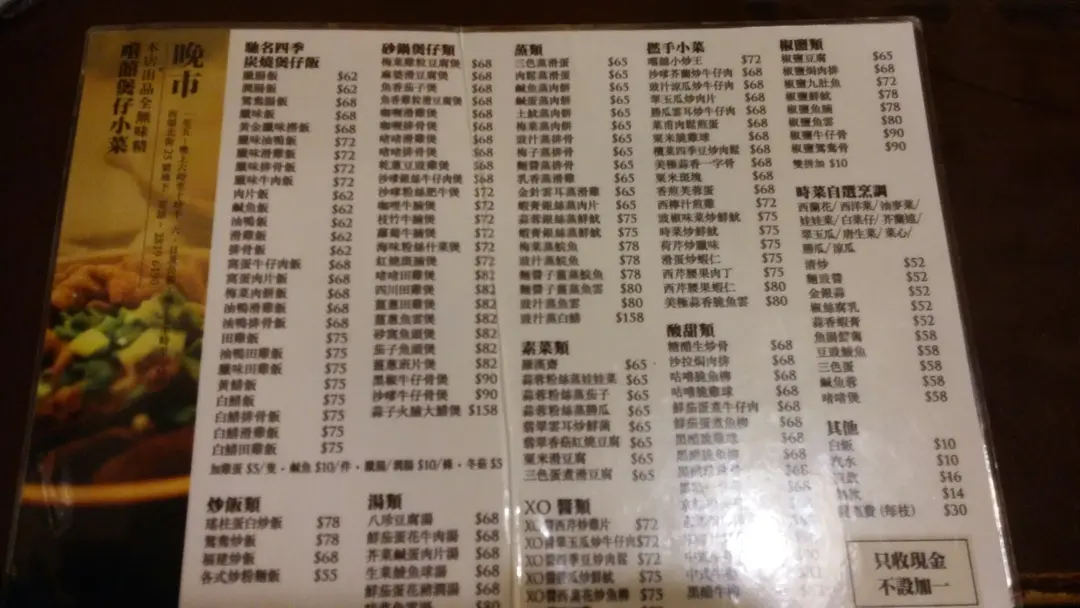 晚市
本店出品全無味精
嚐囍煲仔小菜
馳名四季
炭燒煲仔飯
臘腸飯 $62
潤腸飯 $62
鴛鴦腸飯 $68
臘味飯 $68
黃金臘味撈飯 $68
臘味油鴨飯 $72
臘味滑雞飯 $72
臘味排骨飯 $72
臘味牛肉飯 $72
肉片飯 $62
鹹魚飯 $62
油鴨飯 $62
滑雞飯 $62
排骨飯 $62
窩蛋牛仔肉飯 $68
窩蛋肉片飯 $68
梅菜肉餅飯 $68
油鴨滑雞飯 $68
油鴨排骨飯 $68
田雞飯 $75
油鴨田雞飯 $75
臘味田雞飯 $75
黃鱔飯 $75
白鱔飯 $75
白鱔排骨飯 $75
白鱔滑雞飯 $75
白鱔田雞飯 $75
加雞蛋 $5/隻・鹹魚 $10/件・臘腸/潤腸 $10/條・冬菇 $5
炒飯類
瑤柱蛋白炒飯 $78
鴛鴦炒飯 $78
福建炒飯 $68
各式炒粉麵飯 $55
砂鍋煲仔類
梅菜雞粒豆腐煲 $68
麻婆滑豆腐煲 $68
魚香茄子煲 $68
魚香雞粒滑豆腐煲 $68
咖喱滑雞煲 $68
咖喱排骨煲 $68
啫啫滑雞煲 $68
啫啫排骨煲 $68
乾蔥豆豉雞煲 $68
沙嗲銀絲牛仔肉煲 $68
沙嗲粉絲肥牛煲 $72
咖喱牛腩煲 $72
枝竹牛腩煲 $72
蘿蔔牛腩煲 $72
海味粉絲什菜煲 $72
紅燒斑腩煲 $72
啫啫田雞煲 $82
四川田雞煲 $82
薑蔥田雞煲 $82
薑蔥魚雲煲 $82
砂窩魚頭煲 $82
茄子魚頭煲 $82
薑蔥斑片煲 $82
黑椒牛仔骨煲 $90
沙嗲牛仔骨煲 $90
蒜子火腩大鱔煲 $158
湯類
八珍豆腐湯 $68
鮮茄蛋花牛肉湯 $68
芥菜鹹蛋肉片湯 $68
生菜鯪魚球湯 $68
鮮茄蛋花豬潤湯 $68
$80
蒸類
三色蒸滑蛋 $65
肉鬆蒸滑蛋 $65
鹹魚蒸肉餅 $65
鹹蛋蒸肉餅 $65
土魷蒸肉餅 $65
梅菜蒸肉餅 $65
豉汁蒸排骨 $65
梅子蒸排骨 $65
麵醬蒸排骨 $65
乳香蒸滑雞 $65
金針雲耳蒸滑雞 $65
蝦膏銀絲蒸肉片 $65
蒜蓉銀絲蒸鮮魷 $75
蝦膏銀絲蒸鮮魷 $75
梅菜蒸鯇魚 $78
豉汁蒸鯇魚 $78
麵醬子薑蒸鯇魚 $78
麵醬子薑蒸魚雲 $80
豉汁蒸魚雲 $80
豉汁蒸白鱔 $158
素菜類
羅漢齋 $65
蒜蓉粉絲蒸娃娃菜 $65
蒜蓉粉絲蒸茄子 $65
蒜蓉粉絲蒸勝瓜 $65
翡翠雲耳炒鮮菌 $65
翡翠香菇紅燒豆腐 $65
粟米滑豆腐 $65
三色蛋煮滑豆腐 $65
XO 醬類
XO醬西芹炒雞片 $72
XO醬翠玉瓜炒牛仔肉 $72
XO醬四季豆炒肉鬆 $72
XO醬涼瓜炒鮮魷 $75
XO醬西蘭花炒魚柳 $75
搣手小菜
嚐囍小炒王 $72
沙嗲芥蘭炒牛仔肉 $68
豉汁涼瓜炒牛仔肉 $68
翠玉瓜炒肉片 $68
勝瓜雲耳炒牛仔肉 $68
菜甫肉鬆煎蛋 $68
粟米脆雞球 $68
欖菜四季豆炒肉鬆 $68
美極蒜香一字骨 $68
粟米斑塊 $68
香煎芙蓉蛋 $68
西檸汁煎雞 $72
豉椒味菜炒鮮魷 $75
時菜炒鮮魷 $75
荷芹炒臘味 $75
滑蛋炒蝦仁 $75
西芹腰果肉丁 $75
西芹腰果蝦仁 $80
美極蒜香脆魚雲 $80
酸甜類
糖醋生炒骨 $68
沙拉焗肉排 $68
咕嚕脆魚柳 $68
咕嚕脆雞球 $68
鮮茄蛋煮牛仔肉 $68
鮮茄蛋煮魚柳 $68
黑醋脆雞球 $68
黑醋脆魚柳 $68
椒鹽類
椒鹽豆腐 $65
椒鹽焗肉排 $68
椒鹽九肚魚 $72
椒鹽鮮魷 $78
椒鹽魚腩 $78
椒鹽魚雲 $80
椒鹽牛仔骨 $90
椒鹽鴛鴦骨 $90
雙拼加 $10
時菜自選烹調
西蘭花/ 西洋菜/ 油麥菜/
娃娃菜/ 白菜仔/ 芥蘭遠/
翠玉瓜/ 唐生菜/ 菜心/
勝瓜/ 涼瓜
清炒 $52
麵豉醬 $52
金銀蒜 $52
椒絲腐乳 $52
蒜香蝦膏 $52
魚湯醬菌 $58
豆豉鯪魚 $58
三色蛋 $58
鹹魚蓉 $58
啫啫煲 $58
其他
白飯 $10
汽水 $10
$16
$14
費 (每枝) $30
只收現金
不設加一